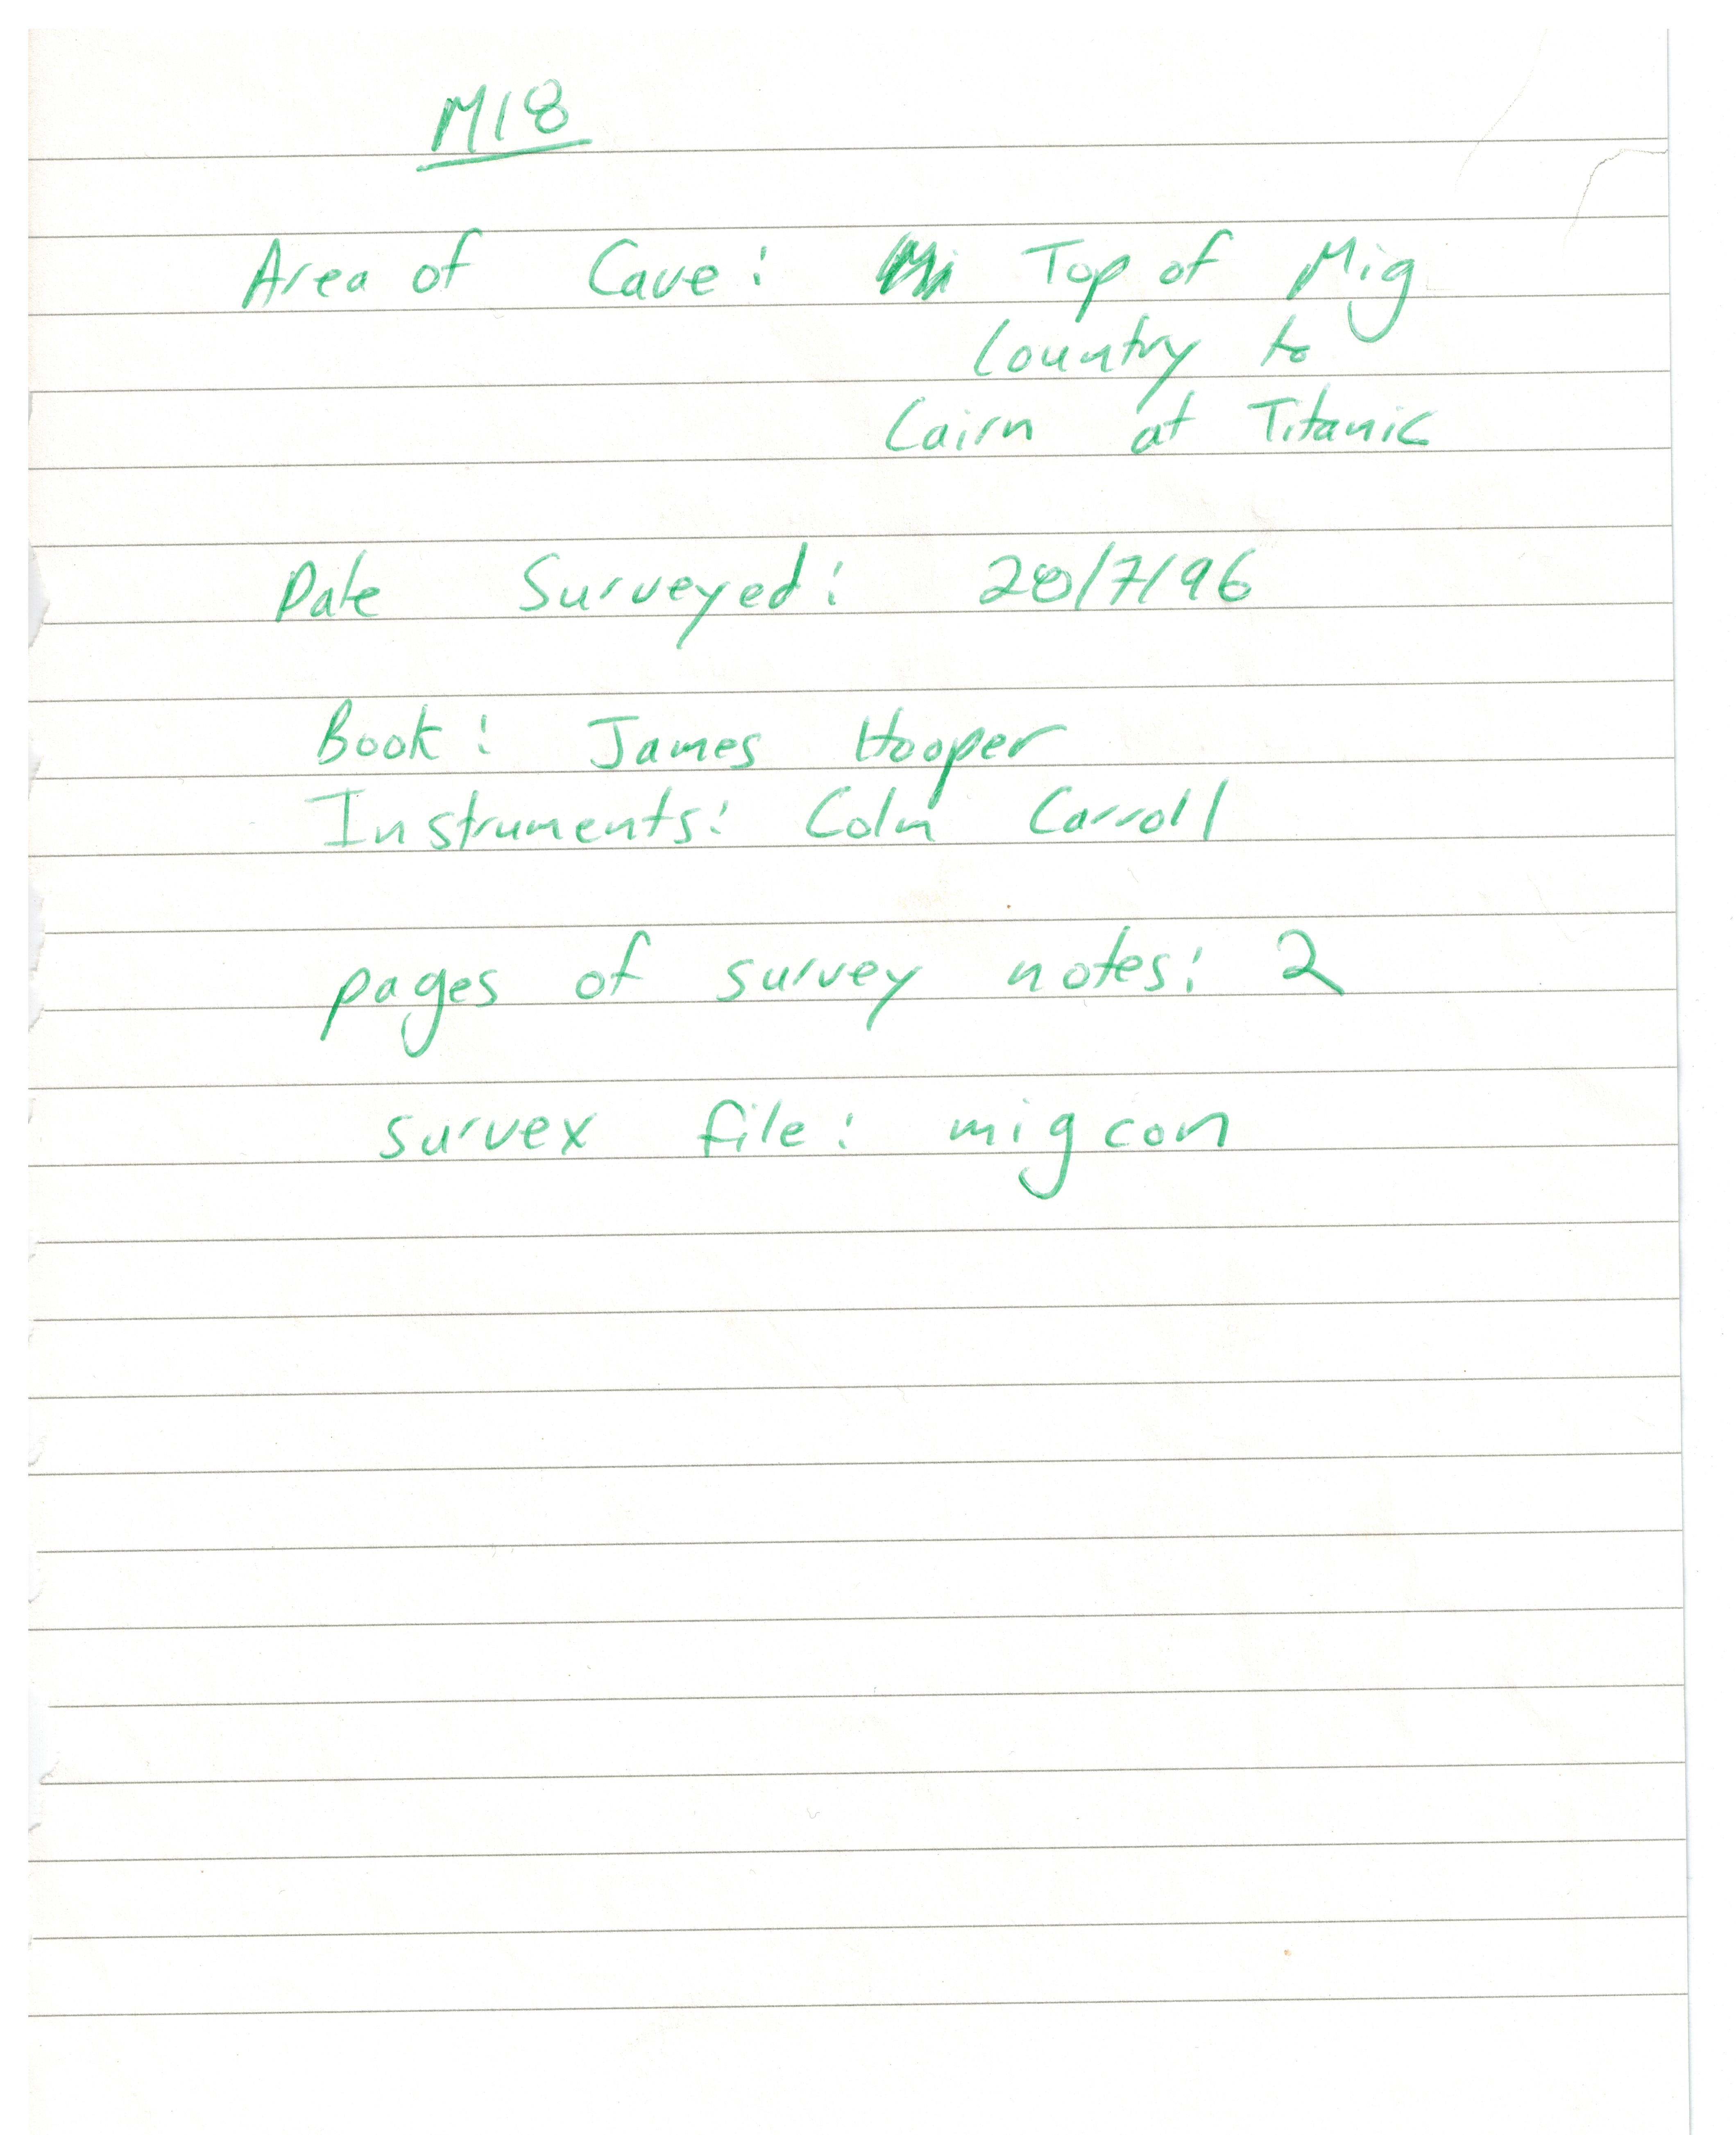 M18
Area of Cave: Top of Mig
Country to
Cairn at Titanic
Date Surveyed: 20/7/96
Book: James Hooper
Instruments: Colm Carroll
pages of survey notes: 2
survex file: migcon